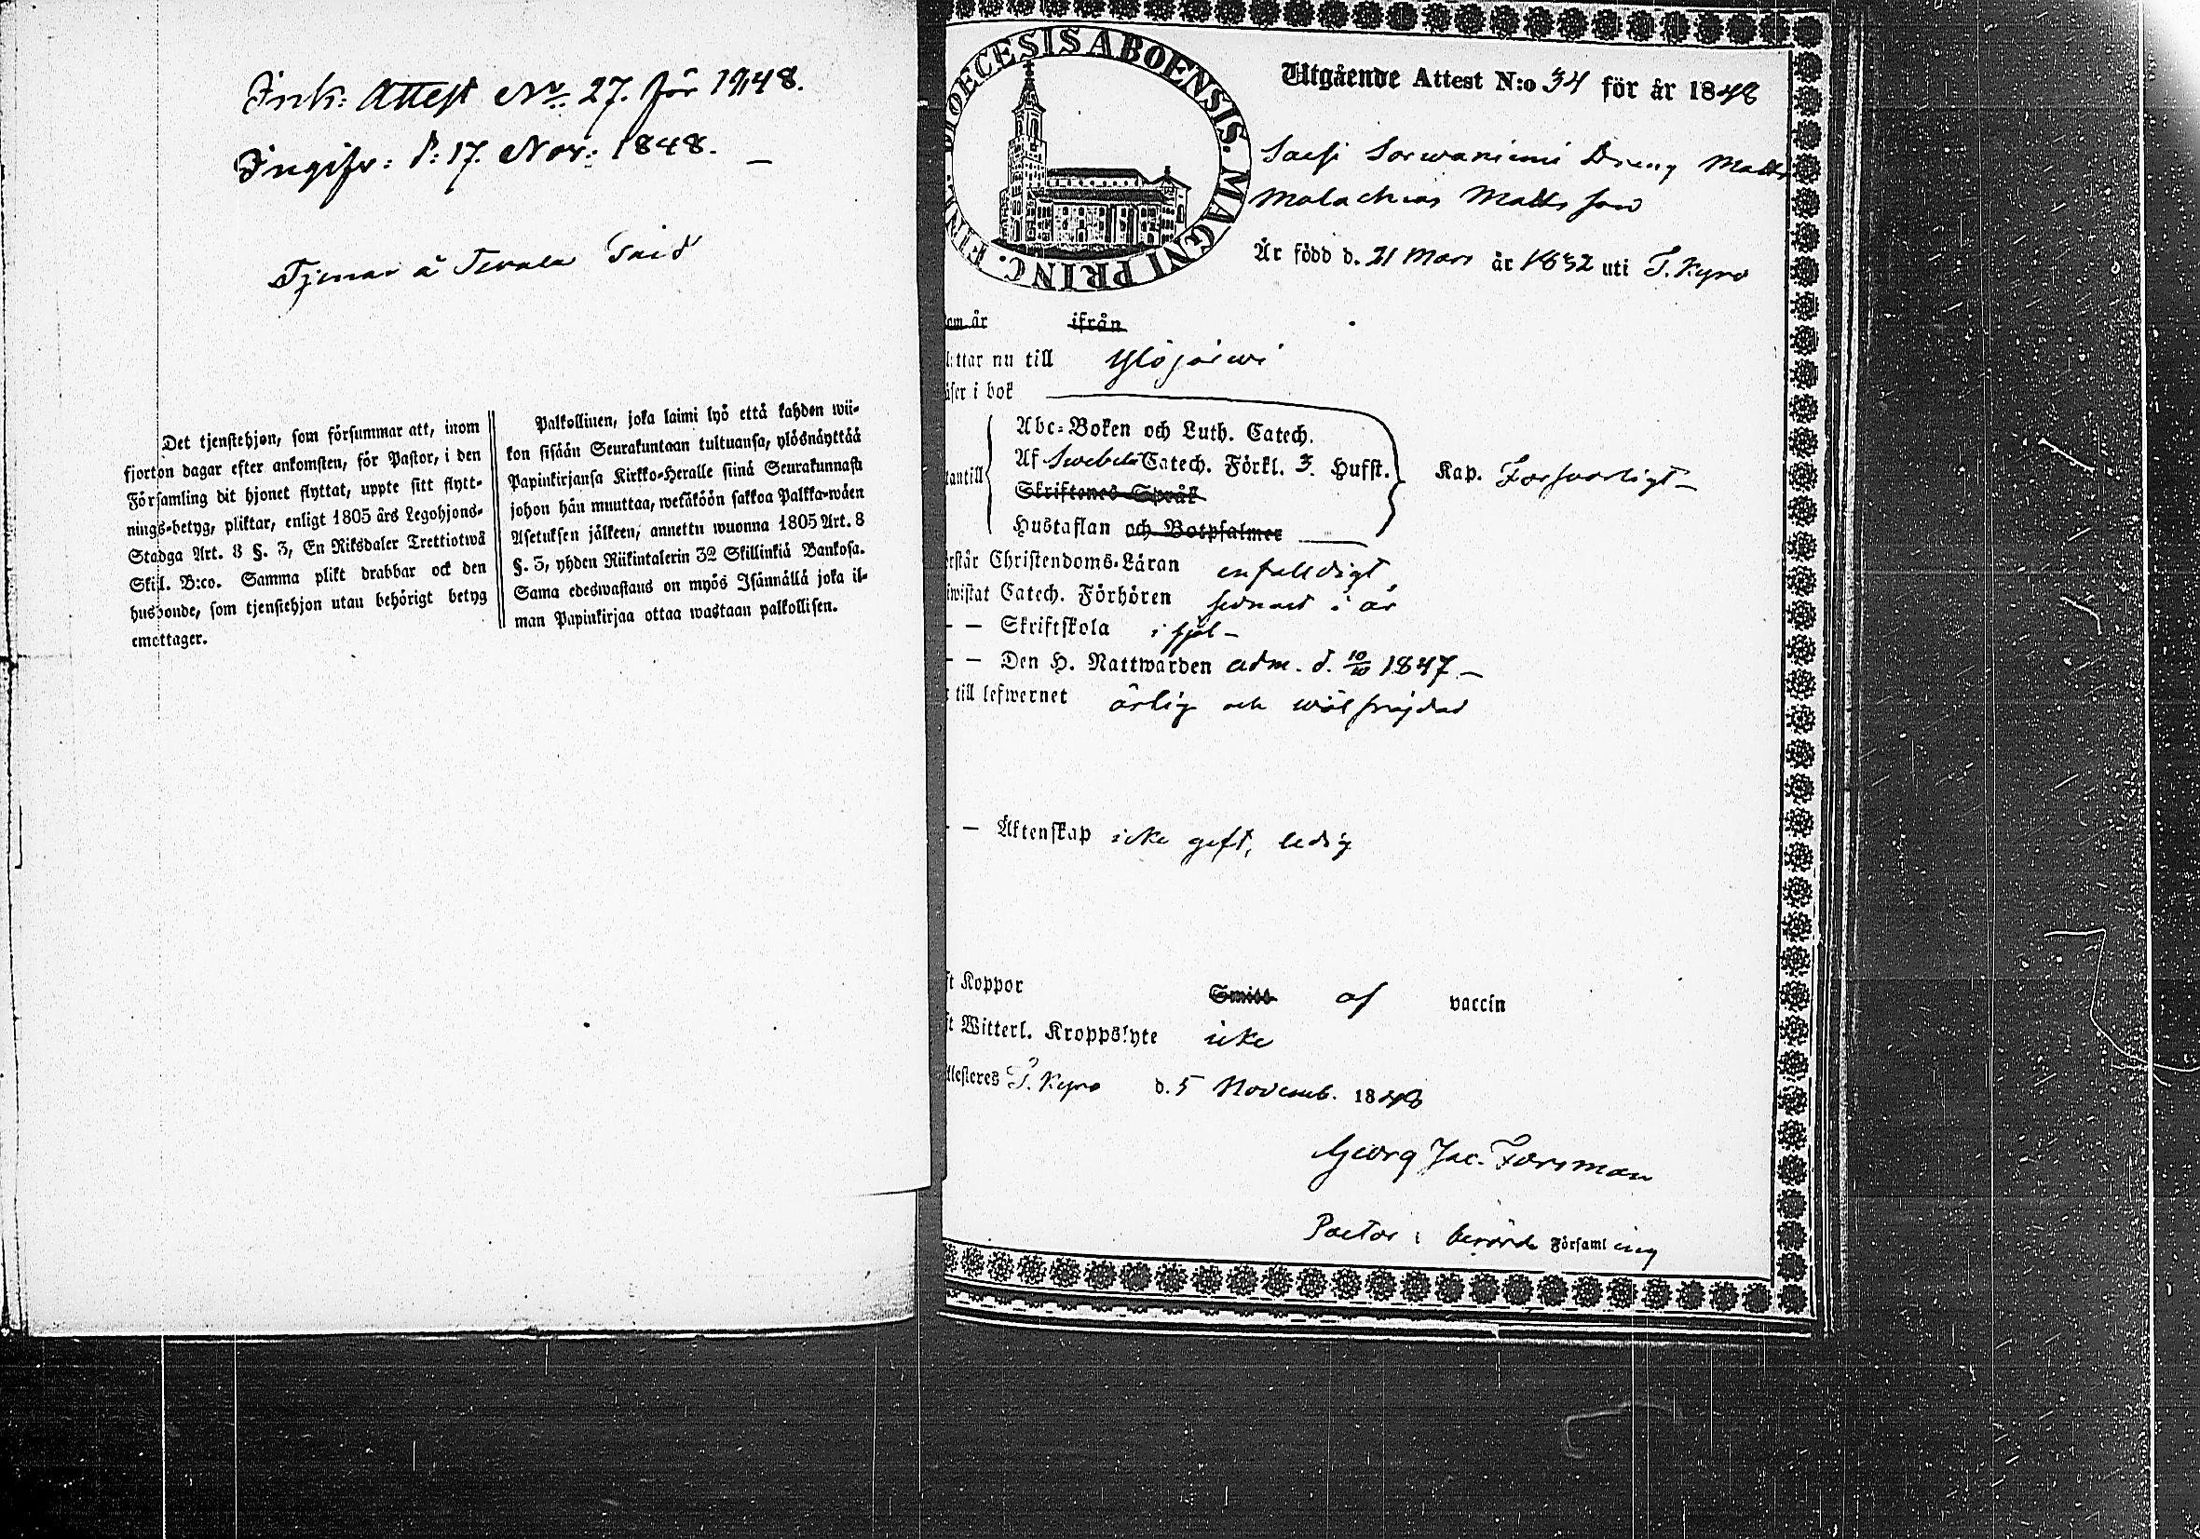 Ink: Attest No. 27. för 1848.
Ingifv: d: 17. Nov: 1848. —
Tjenar å
Det tjenstehjon, som försummar att, inom
fjorton dagar efter ankomsten, för Pastor, i den
Församling dit hjonet flyttat, uppte sitt flytt-
nings-betyg, pliktar, enligt 1805 års Legohjons-
Stadga Art. 8 §. 3, En Riksdaler Trettiotwå
Skil. B:co. Samma plikt drabbar ock den
husbonde, som tjenstehjon utan behörigt betyg
emottager.
Palkollinen, joka laimi lyö että kahden wii-
kon sisään Seurakuntaan tultuansa, ylösnäyttää
Papinkirjansa Kirkko-Heralle siinä Seurakunnass
johon hän muuttaa, wetäköön sakkoa Palkka-wäen
Asetuksen jälkeen, annettu wuonna 1805 Art. 8
§. 3, yhden Riikintalerin 32 Skillinkiä Bankosa.
Sama edeswastaus on myös Isännällä joka il-
man Papinkirjaa ottaa wastaan palkollisen.
DIOECESIS ABOENSIS. MAGNI PRINC. FINL.
Utgående Attest N:o 34 för år 1848
Dreng Matts
Malachias Mattsson
Är född d. 21 Mars år 1832 uti T. Kyro
om år ifrån
ttar nu till Ylöjärwi
äser i bok
Abc-Boken och Luth. Catech.
Af Swebelii Catech. Förkl. 3. Hufst. Kap. Forsvarligt —
antill
Skriftenes Språk
Hustaflan och Botpsalmer
erstår Christendoms-Läran enfalldigt
iwistat Catech. Förhören sednast i år
— — Skriftskola i fjol —
— — Den H. Nattwarden adm. d. 10/10 1847 —
till lefwernet ärlig och wälfrejdad
— — Äktenskap icke gift, ledig
ft Koppor Smitt af vaccin
ft Witterl. Kroppslyte icke
ttesteres T. Kyro d. 5 Novemb. 1848
Georg Jac. Forsman
Pastor i berörde Församling